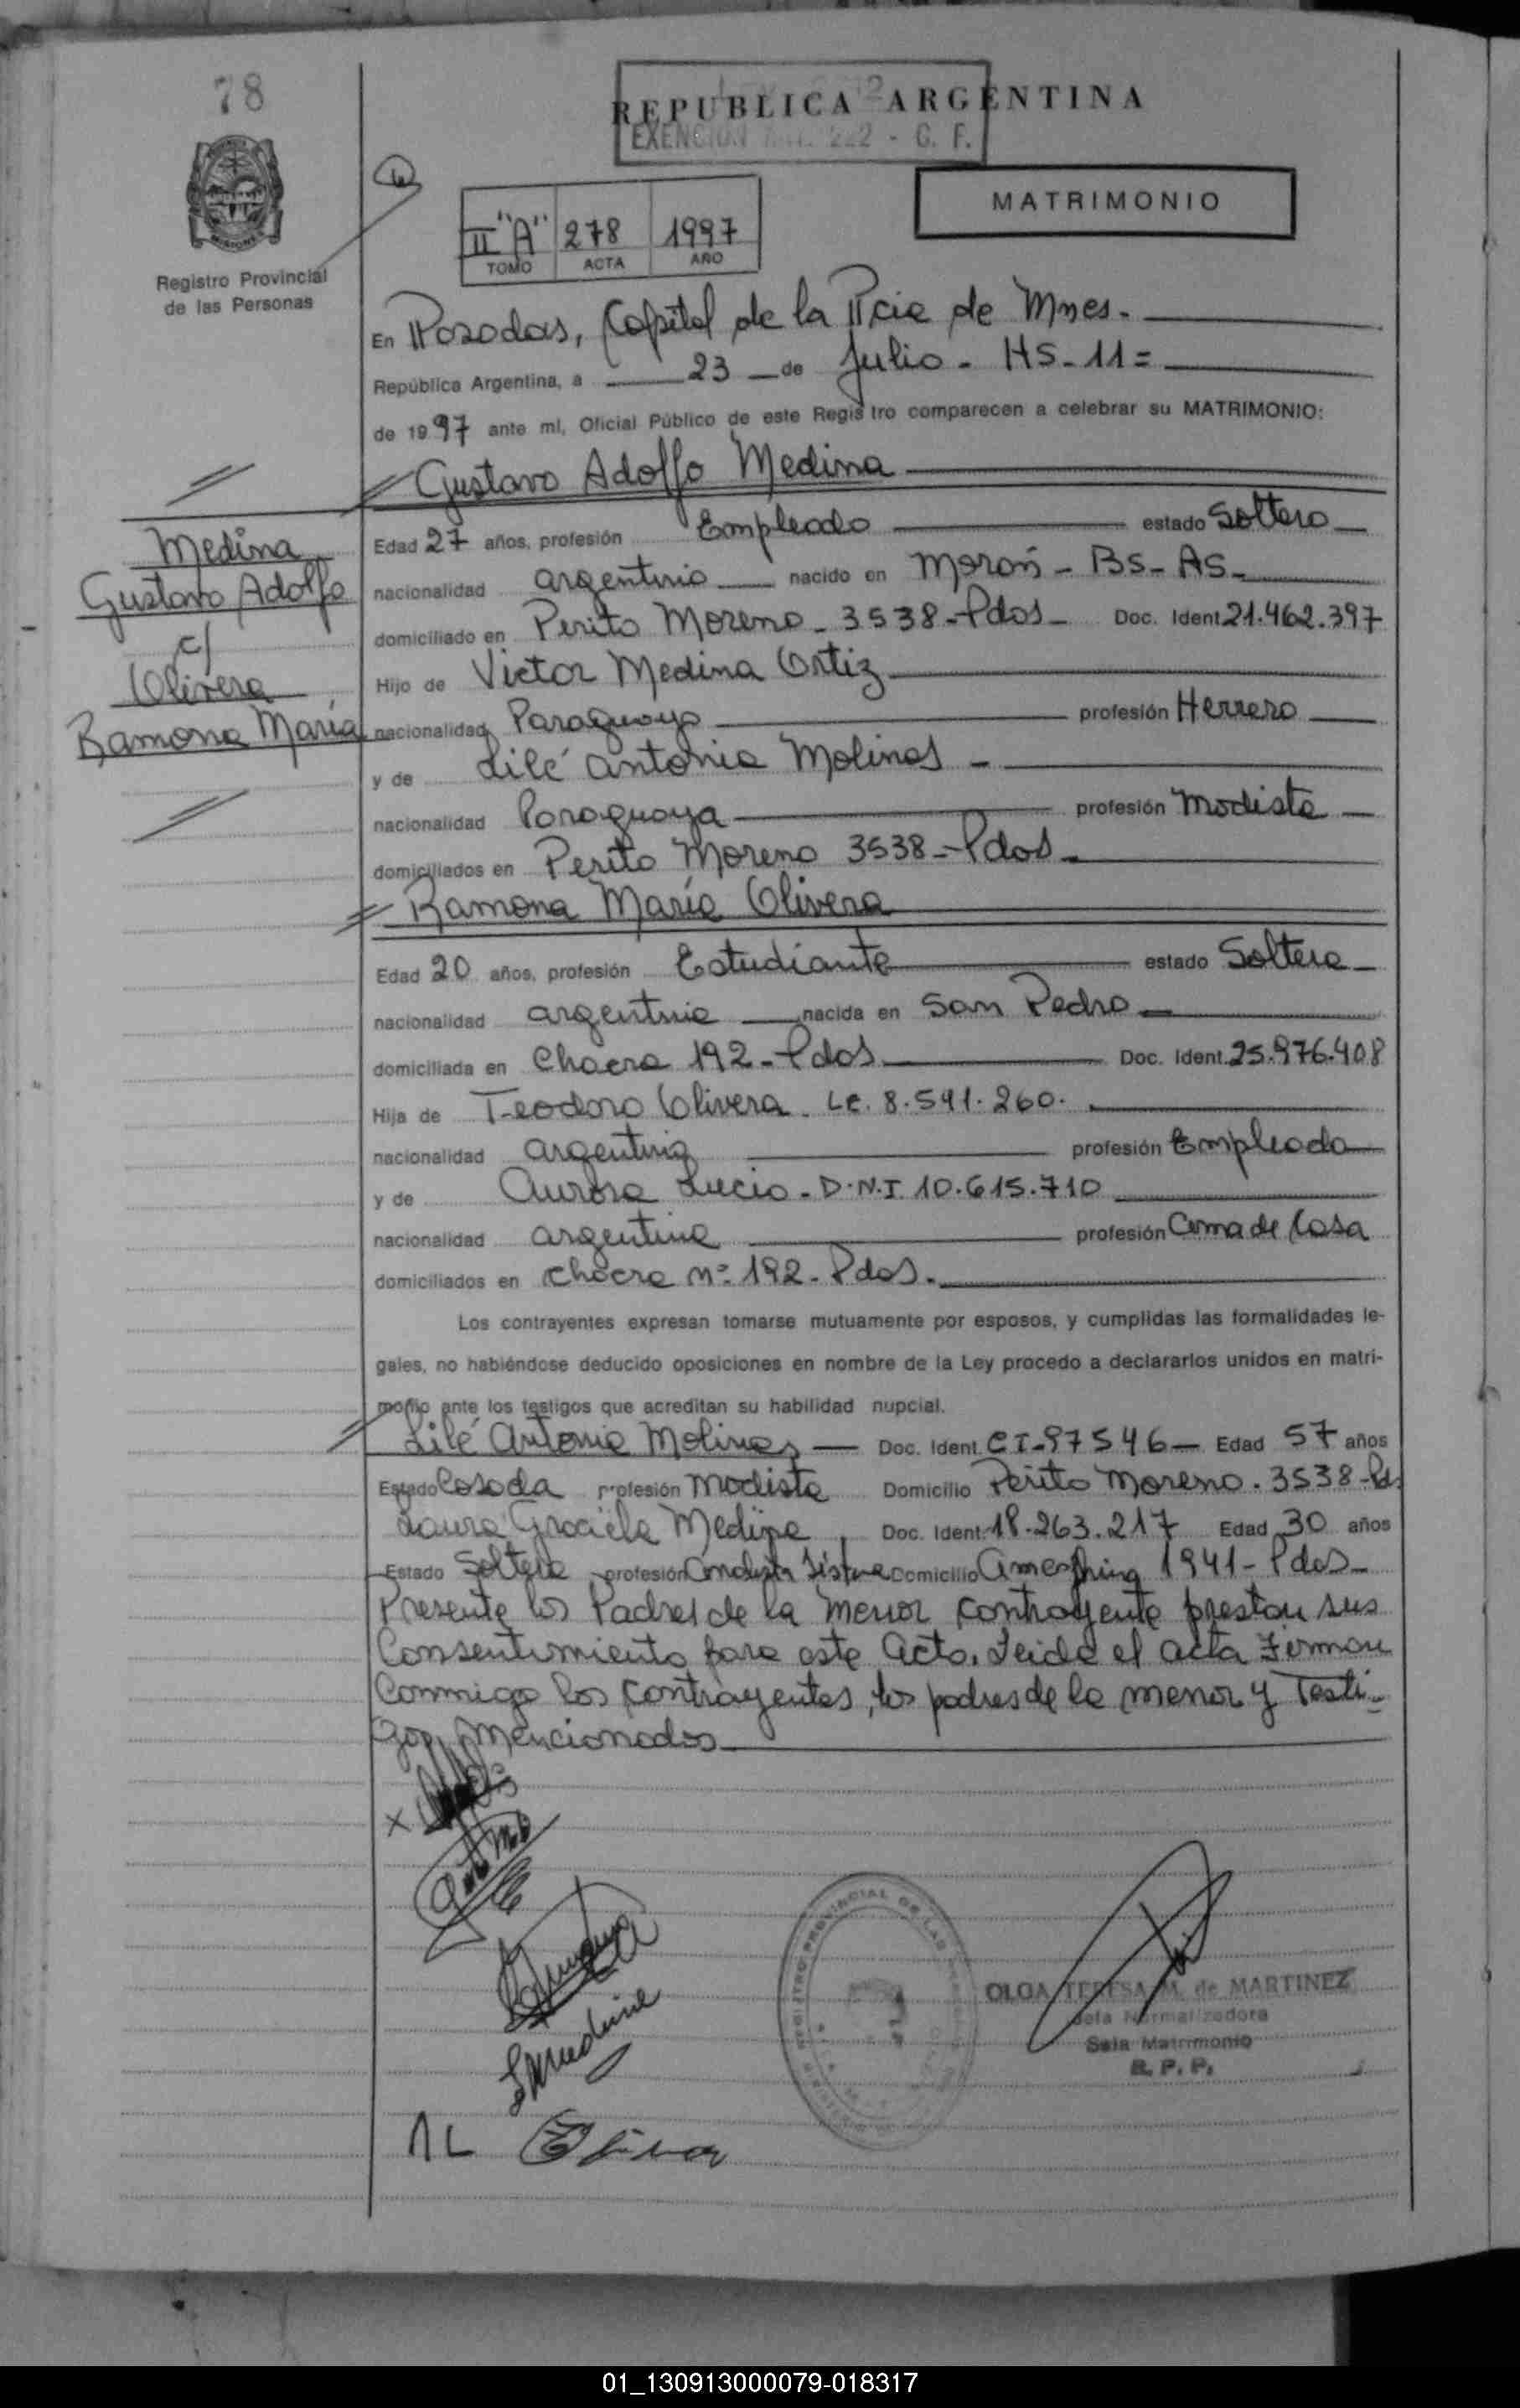 78
REPUBLICA ARGENTINA
EXENCION ART. 222 - G. F.
MATRIMONIO
II "A" 278 1997
TOMO ACTA AÑO
Registro Provincial
de las Personas
En Posadas, Capital de la Pcia de Mnes.-
República Argentina, a 23 de Julio - HS - 11 =
de 1997 ante mí, Oficial Público de este Registro comparecen a celebrar su MATRIMONIO:
Gustavo Adolfo Medina
Medina
Gustavo Adolfo
c/
Olivera
Ramona María
Edad 27 años, profesión Empleado estado Soltero
nacionalidad argentino nacido en Morón - Bs - As -
domiciliado en Perito Moreno - 3538 - Pdas - Doc. Ident. 21.462.397
Hijo de Victor Medina Ortiz
nacionalidad Paraguaya profesión Herrero
y de Lilé Antonia Molinas -
nacionalidad Paraguaya profesión Modista
domiciliados en Perito Moreno 3538 - Pdas -
Ramona María Olivera
Edad 20 años, profesión Estudiante estado Soltera
nacionalidad argentina nacida en San Pedro
domiciliada en Chacra 192 - Pdas Doc. Ident. 25.976.408
Hija de Teodoro Olivera. LE. 8.541.260.
nacionalidad argentina profesión Empleado
y de Aurora Lucio - D.N.I 10.615.710
nacionalidad argentina profesión Ama de Casa
domiciliados en Chacra nº 192 - Pdas.
Los contrayentes expresan tomarse mutuamente por esposos, y cumplidas las formalidades le-
gales, no habiéndose deducido oposiciones en nombre de la Ley procedo a declararlos unidos en matri-
monio ante los testigos que acreditan su habilidad nupcial.
Lilé Antonia Molinas Doc. Ident. CI-97546 Edad 57 años
Estado Casada profesión Modista Domicilio Perito Moreno. 3538 - Pds
Laura Graciela Medina, Doc. Ident. 18.263.217 Edad 30 años
Estado Soltera profesión Analista Domicilio 1941 - Pdas -
Presente los Padres de la menor contrayente prestan sus
Consentimiento para este acto. Leida el acta Firman
Conmigo los contrayentes, los padres de la menor y Testi-
gos Mencionados
OLGA TERESA M. de MARTINEZ
Jefa Normalizadora
Sala Matrimonio
R. P. P.
01_130913000079-018317